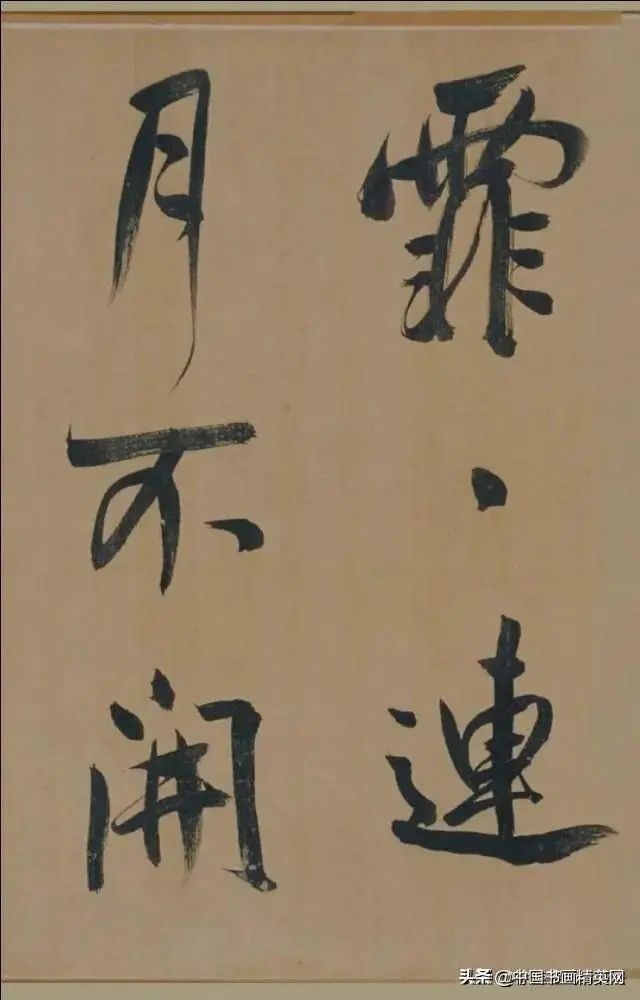 霏、連
月不開
头条 @中国书画精英网